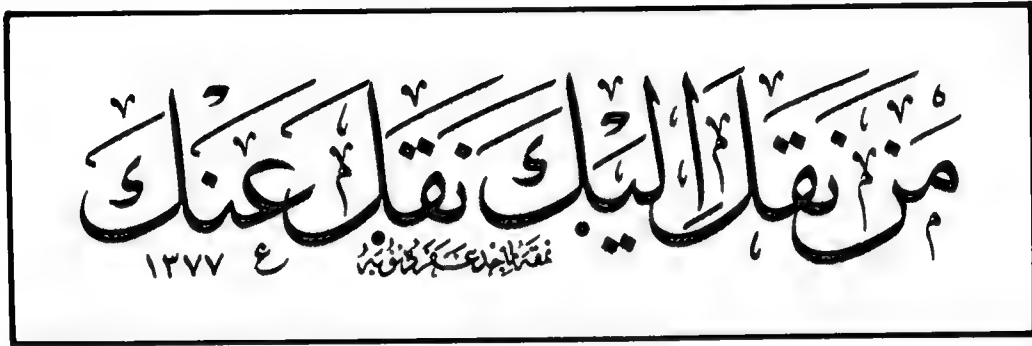 مَنْ نَقَلَ إِلَيْكَ نَقَلَ عَنْكَ
نمقه ماجد غفر ذنوبه ع ١٣٧٧